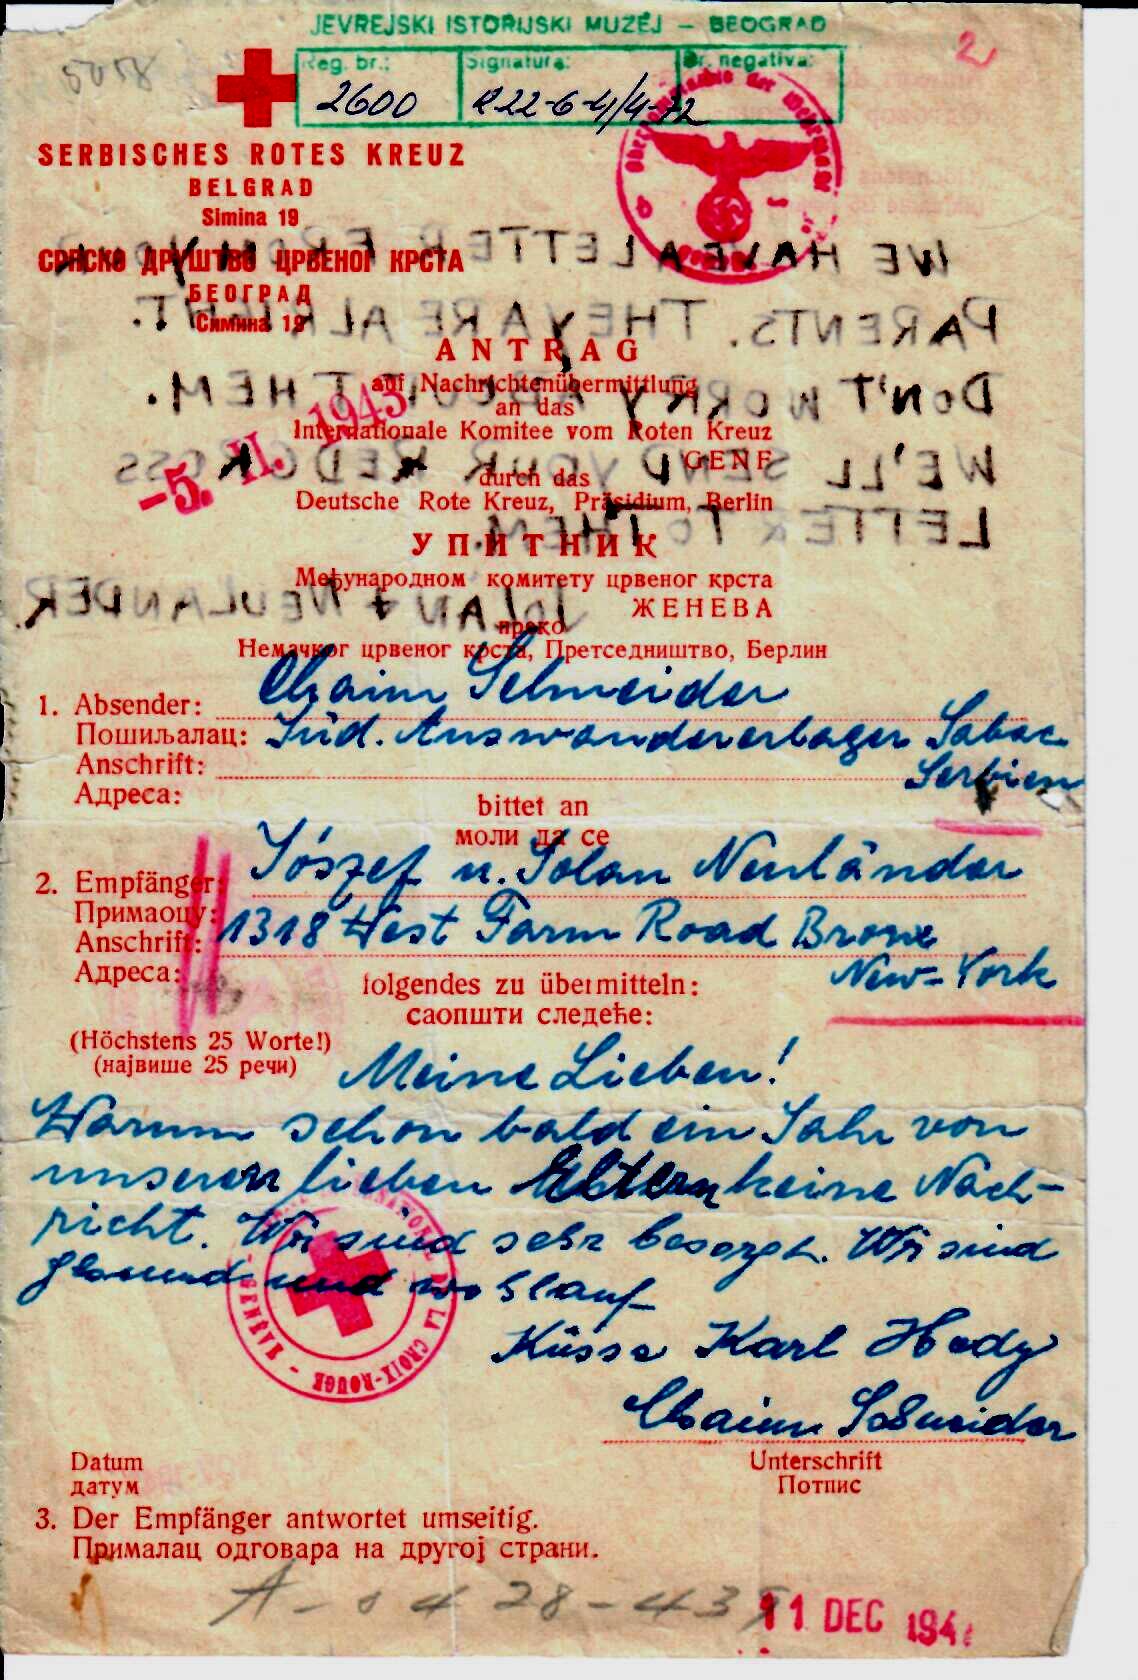 JEVREJSKI ISTORIJSKI MUZEJ – BEOGRAD
Reg. br.: Signatura: Br. negativa:
2600
2
5058
SERBISCHES ROTES KREUZ
BELGRAD
Simina 19
СРПСКО ДРУШТВО ЦРВЕНОГ КРСТА
БЕОГРАД
Симина 19
WE HAVE A LETTER FROM
PARENTS. THEY ARE ALRIGHT.
DON'T WORRY ABOUT THEM.
WE'LL SEND YOUR RED CROSS
LETTER TO THEM.
NEULANDER.
ANTRAG
auf Nachrichtenübermittlung
an das
Internationale Komitee vom Roten Kreuz
GENF
durch das
Deutsche Rote Kreuz, Präsidium, Berlin
-5. II. 1943
УПИТНИК
Међународном комитету црвеног крста
ЖЕНЕВА
преко
Немачког црвеног крста, Претседништво, Берлин
1. Absender: Chaim Schneider
Пошиљалац: Jüd. Auswandererlager Sabac
Anschrift: Serbien
Адреса:
bittet an
моли да се
2. Empfänger: Jószef u. Jolan Neuländer
Примаоцу:
Anschrift: 1318 West Farm Road Bronx
Адреса: New-York
folgendes zu übermitteln:
саопшти следеће:
(Höchstens 25 Worte!)
(највише 25 речи)
Meine Lieben!
Warum schon bald ein Jahr von
unseren lieben Eltern keine Nach-
richt. Wir sind sehr besorgt. Wir sind
gesund und wohlauf
Küsse Karl Hedy
Chaim Schneider
GENÈVE - LA CROIX-ROUGE
Datum
датум
Unterschrift
Потпис
3. Der Empfänger antwortet umseitig.
Прималац одговара на другој страни.
11 DEC 194